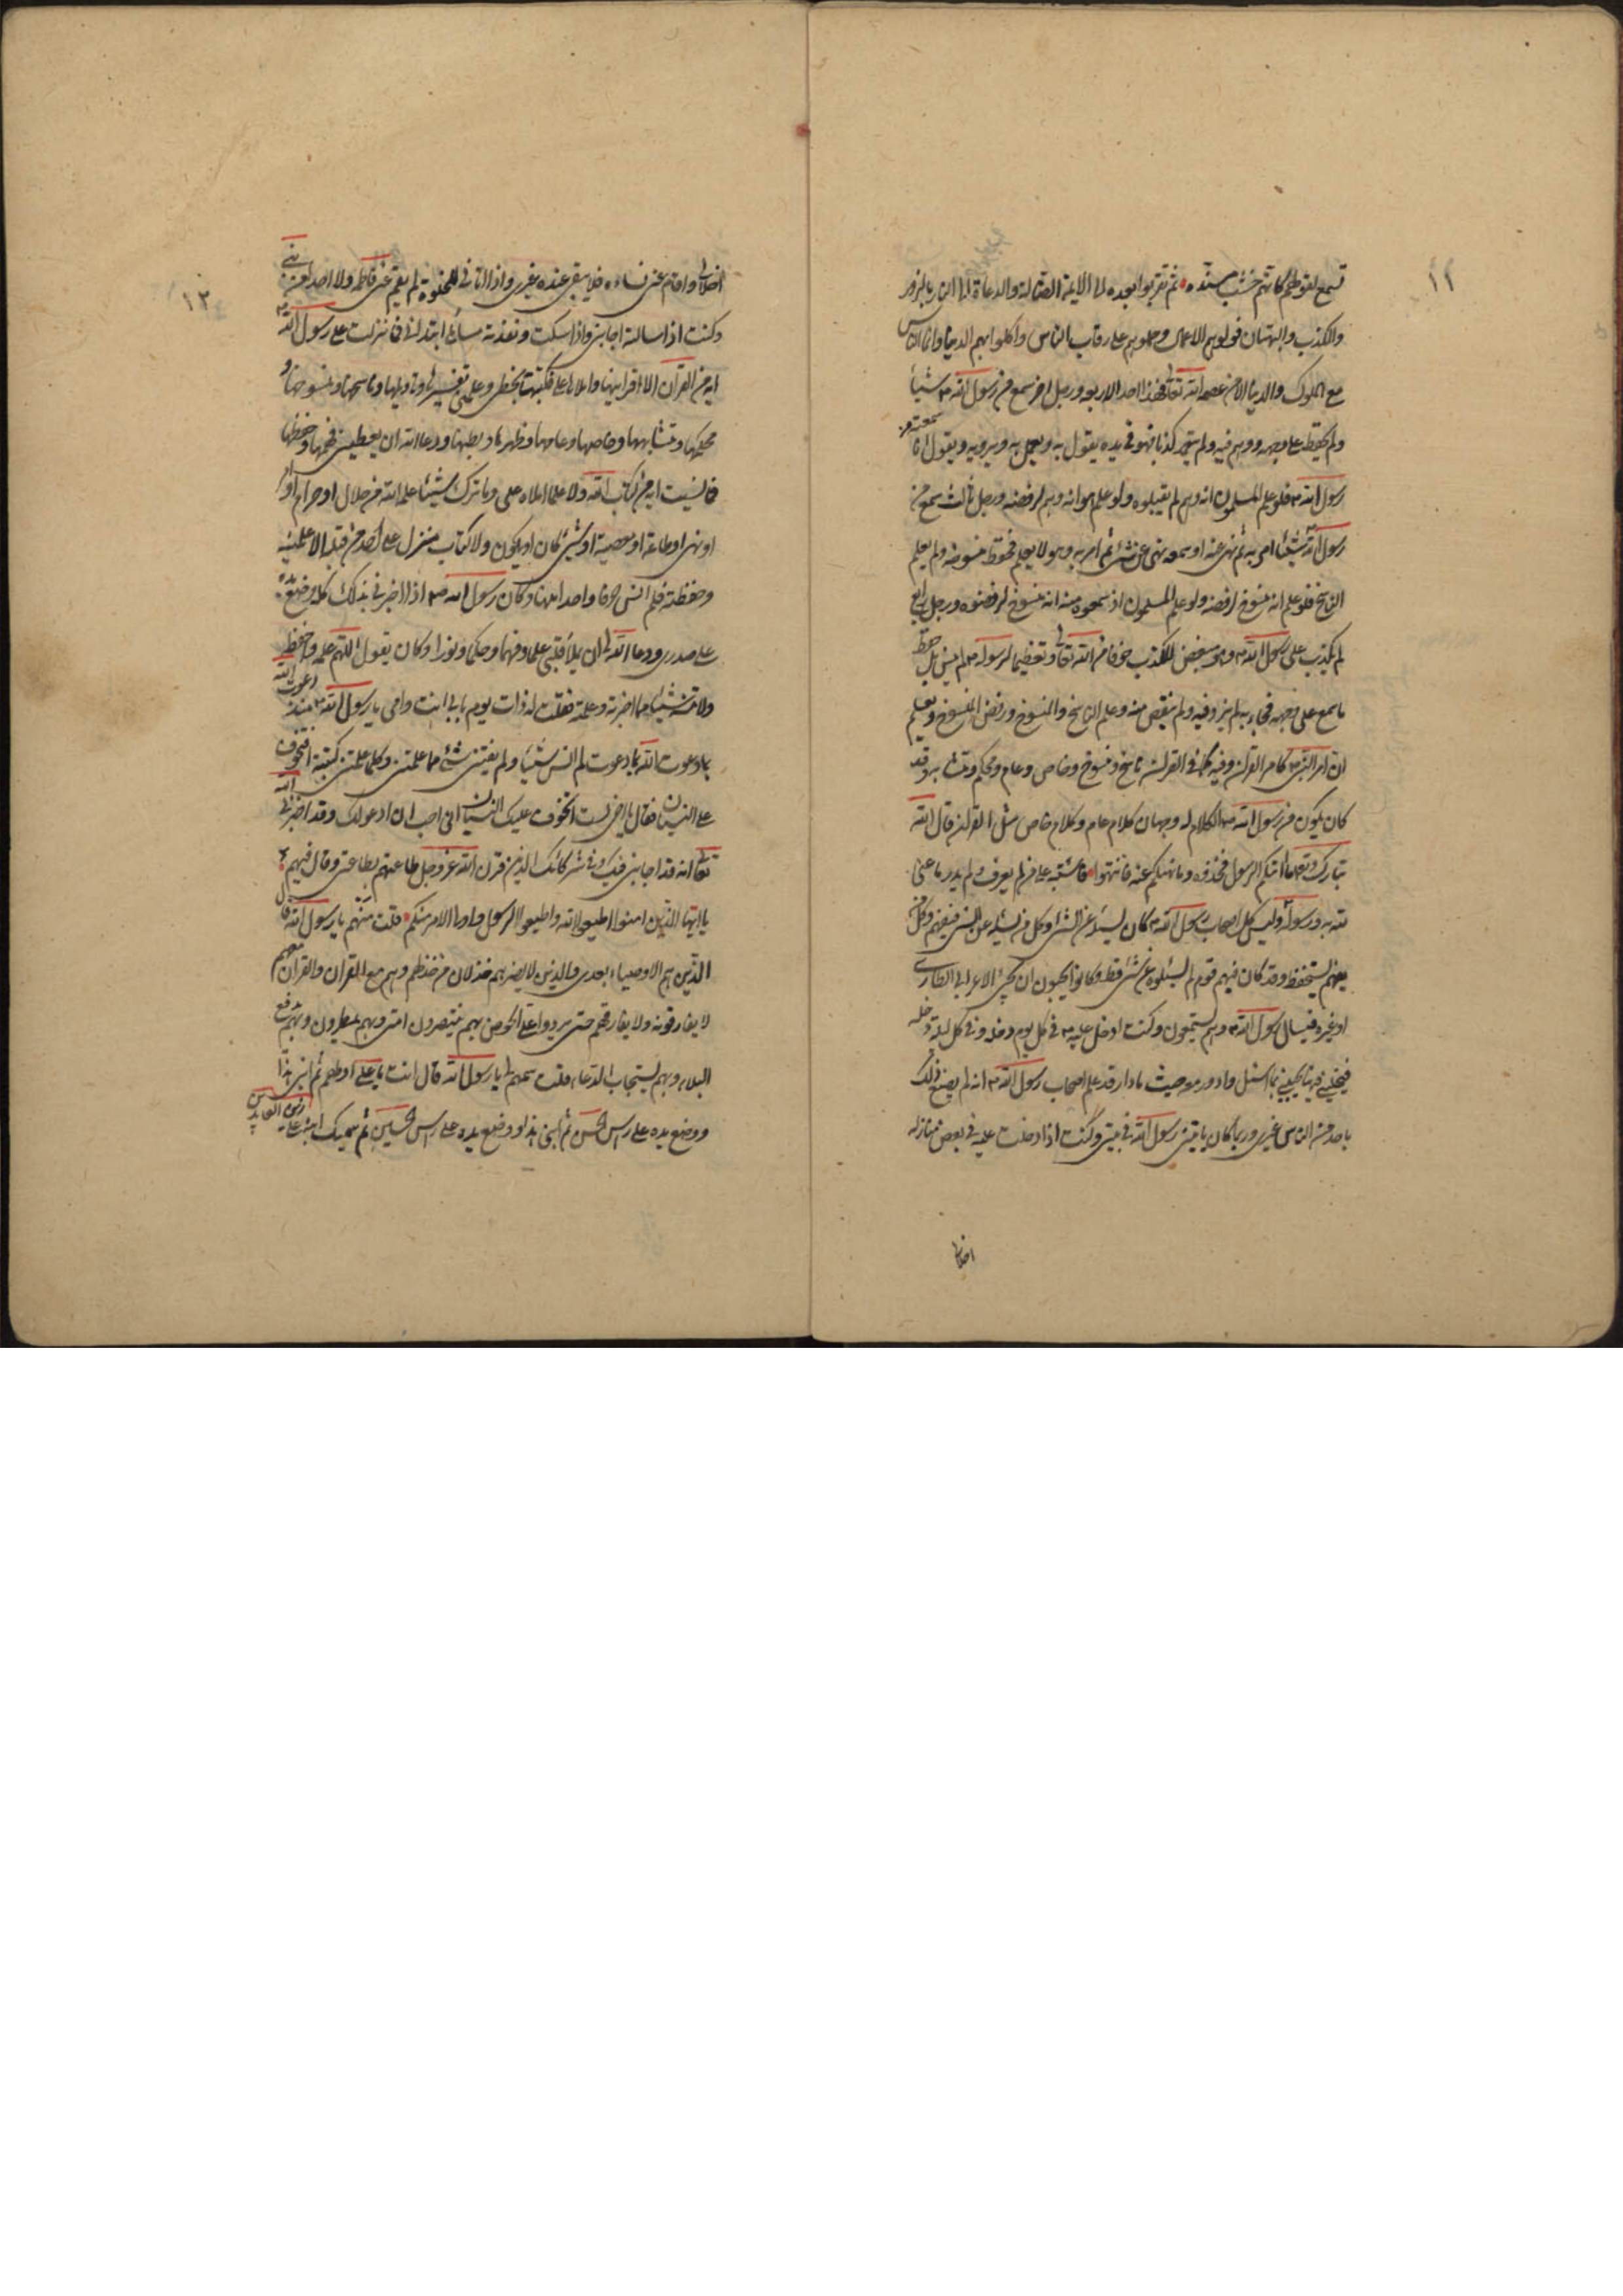 ١١
تسمع لقولهم كانهم خشب مسنده ثم تقربوا بعده الى الايمة الضالة والدعاة الى النار بالزور
والكذب والبهتان فولوهم الاعمال وحملوهم على رقاب الناس واكلوا بهم الدنيا وانما الناس
مع الملوك والدنيا الا من عصمه الله تعالى فهذا احد الاربعه ورجل اخر سمع من رسول الله ص شيئا
ولم يحفظه على وجهه ووهم فيه ولم يتعمد كذبا فهو في يده يقول به ويعمل به ويرويه ويقول انا سمعته من
رسول الله ص فلو علم المسلمون انه وهم لم يقبلوه ولو علم هو انه وهم لرفضه ورجل ثالث سمع من
رسول الله ص شيئا امر به ثم نهى عنه او سمعه نهى عن شئ ثم امر به وهو لا يعلم فحفظ منسوخه ولم يعلم
الناسخ فلو علم انه منسوخ لرفضه ولو علم المسلمون اذ سمعوه منه انه منسوخ لرفضوه ورجل رابع
لم يكذب على رسول الله ص وهو مبغض للكذب خوفا من الله تعالى وتعظيما لرسوله ص لم ينس بل حفظ
ما سمع على وجهه فجاء به لم يزد فيه ولم ينقص منه وعلم الناسخ والمنسوخ ورفض المنسوخ ويعلم
ان امر النبي ص كامر القرآن وفيه كما في القرآن ناسخ ومنسوخ وخاص وعام ومحكم ومتشابه وقد
كان يكون من رسول الله ص الكلام له وجهان كلام عام وكلام خاص مثل القرآن قال الله
تبارك وتعالى ما اتيكم الرسول فخذوه وما نهيكم عنه فانتهوا فاشتبه على من لم يعرف ولم يدر ما عنى
الله به ورسوله وليس كل اصحاب رسول الله ص كان يسئله عن الشئ وكل من يسئله عن الشئ فيفهم وكل من
يفهم يستحفظ وقد كان فيهم قوم لم يسئلوه عن شئ قط وكانوا يحبون ان يجئ الاعرابي الطاري
او غيره فيسال رسول الله ص وهم يستمعون وكنت ادخل عليه ص في كل يوم دخلة وفي كل ليلة دخلة
فيخليني فيها يجيبني بما اسئل وادور معه حيث ما دار قد علم اصحاب رسول الله ص انه لم يصنع ذلك
باحد من الناس غيري وربما كان ياتيني رسول الله في بيتي وكنت اذا دخلت عليه في بعض منازله
اخلاني
١٢
اخلانى واقام عنى نساءه فلا يبقى عنده غيري واذا اتاني للخلوة لم يقم عنى فاطمه ولا احد من بني
وكنت اذا سالته اجابني واذا سكت ونفذت مسائلى ابتداني فما نزلت على رسول الله ص
اية من القرآن الا اقرانيها واملاها على فكتبتها بخطى وعلمني تفسيرها وتاويلها وناسخها ومنسوخها و
محكمها ومتشابهها وخاصها وعامها وظهرها وبطنها ودعا الله ان يعطيني فهمها وحفظها
فما نسيت اية من كتاب الله ولا علما املاه على وما ترك شيئا علمه الله من حلال او حرام او امر
او نهى او طاعة او معصية او شئ كان او يكون ولا كتاب منزل على احد من قبله الا علمنيه
وحفظته فلم انس حرفا واحدا منها وكان رسول الله ص اذا اخبرني بذلك كله وضع يده
على صدري ودعا الله ان يملأ قلبى علما وفهما وحكما ونورا وكان يقول اللهم علمه وحفظه
ولا تنسه شيئا مما اخبرته وعلمته فقلت له ذات يوم بابي انت وامى يا رسول الله ص منذ دعوت الله
بما دعوت الله بما دعوت لم انس شيئا ولم يفتنى شئ مما علمتنى وكلما علمتنى كتبته افتتخوف
على النسيان فقال يا اخى لست اتخوف عليك النسيان اني احب ان ادعو لك وقد اخبرني الله
تعالى انه قد اجابنى فيك وفي شركائك الذين قرن الله عز وجل طاعتهم بطاعتى وقال فيهم
يا ايها الذين امنوا اطيعوا الله واطيعوا الرسول واولى الامر منكم قلت منهم يا رسول الله قال
الذين هم الاوصياء بعدى والذين لا يضرهم خذلان من خذلهم وهم مع القرآن والقرآن معهم
لا يفارقونه ولا يفارقهم حتى يردوا على الحوض بهم ينتصرون امتى وبهم يمطرون وبهم يدفع
البلاء وبهم يستجاب الدعاء قلت سمهم لى يا رسول الله قال انت يا على اولهم ثم ابنى هذا
ووضع يده على راس الحسن ثم ابنى هذا ووضع يده على راس الحسين ثم سميك ابنه على زين العابدين